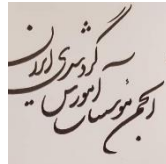 انجمن مؤسسات آموزش
گردشگری ایران